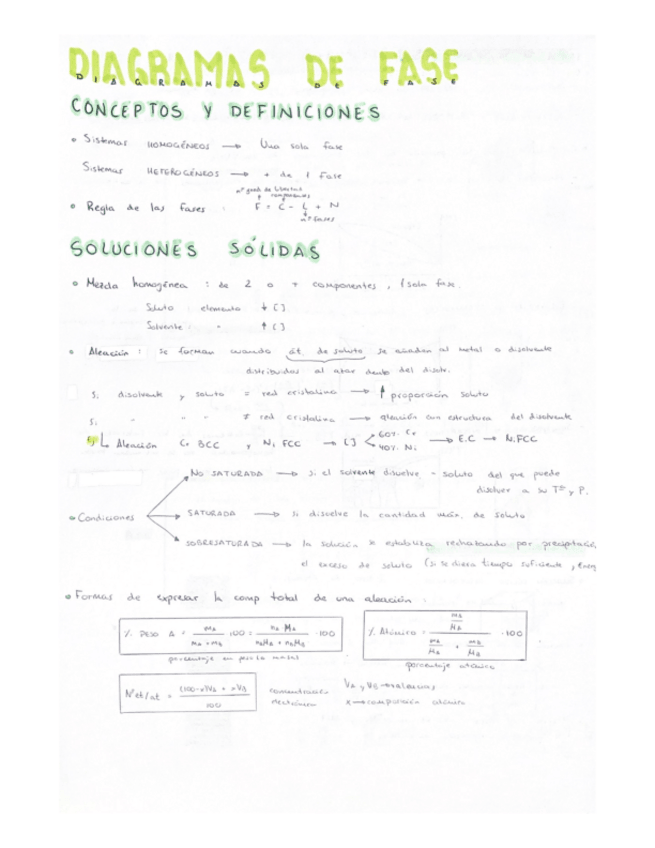 DIAGRAMAS DE FASE
CONCEPTOS Y DEFINICIONES
• Sistemas HOMOGÉNEOS → Una sola fase
Sistemas HETEROGÉNEOS → + de 1 fase
nº grad. de libertad
↑ componentes
• Regla de las fases : F = C - L + N
nº fases
SOLUCIONES SÓLIDAS
• Mezcla homogénea : de 2 o + componentes, 1 sola fase.
Soluto : elemento ↓ [ ]
Solvente : " ↑ [ ]
• Aleación : se forman cuando át. de soluto se añaden al metal o disolvente
distribuidos al azar dentro del disolv.
Si disolvente y soluto = red cristalina → ↑ proporción soluto
Si " " " ≠ red cristalina → aleación con estructura del disolvente
Ej Aleación Cr BCC y Ni FCC → [ ] < 60% Cr 40% Ni → E.C → Ni FCC
NO SATURADA → si el solvente disuelve - soluto del que puede
disolver a su Tª y P.
• Condiciones SATURADA → si disuelve la cantidad máx. de soluto
SOBRESATURADA → la solución se estabiliza rechazando por precipitación
el exceso de soluto (si se diera tiempo suficiente y
• Formas de expresar la comp total de una aleación :
% PESO A = mA / mA + mB · 100 = nA MA / nAMA + nBMB · 100
% Atómico = mA/MA / mA/MA + mB/MB · 100
porcentaje en peso (o masa)
porcentaje atómico
Nº et/at = (100-x)VA + xVB / 100
concentración electrónica
VA y VB → valencias
x → composición atómica